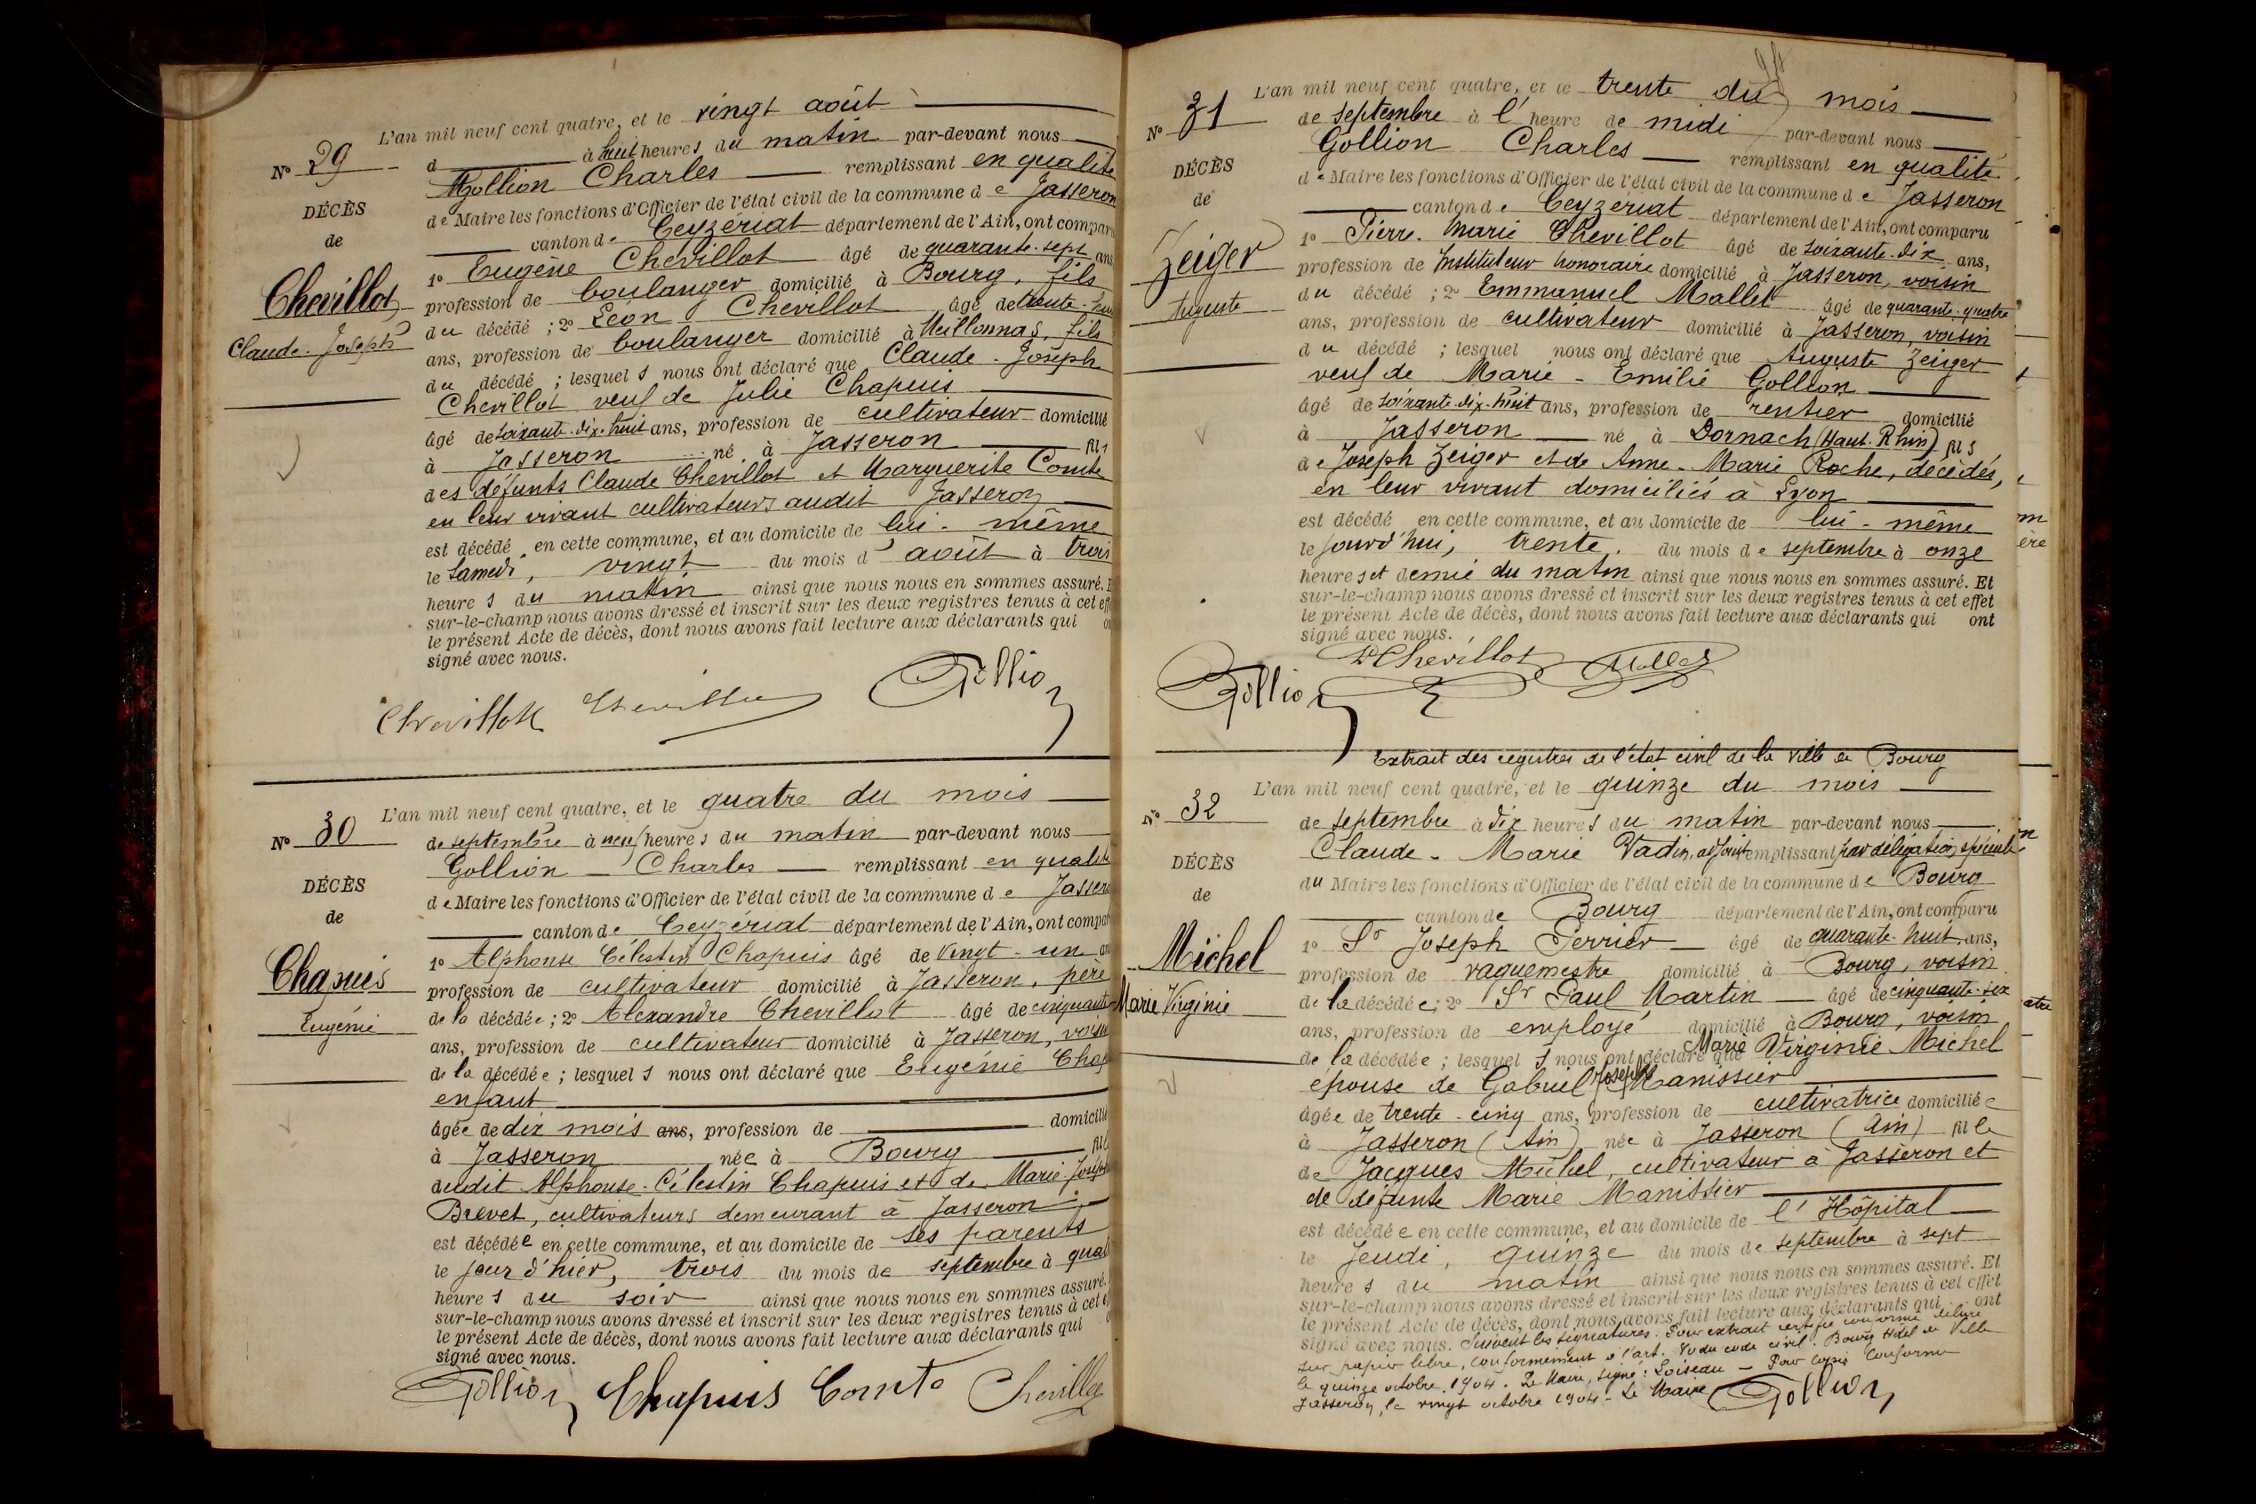 L'an mil neuf cent quatre, et le vingt août
N° 29
d à huit heures du matin par-devant nous
Gollion Charles remplissant en qualité
DÉCÈS
de Maire les fonctions d'Officier de l'état civil de la commune de Jasseron
de
canton de Ceyzériat département de l'Ain, ont comparu
1° Eugène Chevillot âgé de quarante-sept ans
Chevillot
profession de boulanger domicilié à Bourg, fils
Claude-Joseph
du décédé ; 2° Léon Chevillot âgé de trente-
ans, profession de boulanger domicilié à Meillonnas, fils
du décédé ; lesquels nous ont déclaré que Claude-Joseph
Chevillot veuf de Julie Chapuis
âgé de soixante-dix-huit ans, profession de cultivateur domicilié
à Jasseron né à Jasseron fils
des défunts Claude Chevillot et Marguerite Comte
en leur vivant cultivateurs audit Jasseron
est décédé en cette commune, et au domicile de lui-même
le Samedi, vingt du mois d'août à trois
heures du matin ainsi que nous nous en sommes assuré.
sur-le-champ nous avons dressé et inscrit sur les deux registres tenus à cet eff
le présent Acte de décès, dont nous avons fait lecture aux déclarants qui
signé avec nous.
Chevillot Chevillot Gollion
L'an mil neuf cent quatre, et le quatre du mois
N° 30
de septembre à neuf heures du matin par-devant nous
Gollion Charles remplissant en qualité
DÉCÈS
de Maire les fonctions d'Officier de l'état civil de la commune de Jassero
de
canton de Ceyzériat département de l'Ain, ont compar
1° Alphonse Célestin Chapuis âgé de vingt-un an
Chapuis
profession de cultivateur domicilié à Jasseron, père
Eugénie
de la décédée ; 2° Alexandre Chevillot âgé de cinquante
ans, profession de cultivateur domicilié à Jasseron, voisin
de la décédée ; lesquels nous ont déclaré que Eugénie Chap
enfant
âgée de dix mois ans, profession de domicilié
à Jasseron née à Bourg fille
dudit Alphonse-Célestin Chapuis et de Marie-Joseph
Brevet, cultivateurs demeurant à Jasseron
est décédée en cette commune, et au domicile de ses parents
le jour d'hier, trois du mois de septembre à quat
heures du soir ainsi que nous nous en sommes assuré.
sur-le-champ nous avons dressé et inscrit sur les deux registres tenus à cet
le présent Acte de décès, dont nous avons fait lecture aux déclarants qui
signé avec nous.
Gollion Chapuis Comte Chevillot
L'an mil neuf cent quatre, et le trente du mois
N° 31
de septembre à l'heure de midi par-devant nous
Gollion Charles remplissant en qualité
DÉCÈS
de Maire les fonctions d'Officier de l'état civil de la commune de Jasseron
de
canton de Ceyzériat département de l'Ain, ont comparu
1° Pierre-Marie Chevillot âgé de soixante-dix ans,
Zeiger
profession de Instituteur honoraire domicilié à Jasseron, voisin
Auguste
du décédé ; 2° Emmanuel Mallet âgé de quarante-quatre
ans, profession de cultivateur domicilié à Jasseron, voisin
du décédé ; lesquel nous ont déclaré que Auguste Zeiger
veuf de Marie-Emilie Gollion
âgé de soixante-dix-huit ans, profession de rentier domicilié
à Jasseron né à Dornach (Haut-Rhin) fils
de Joseph Zeiger et de Anne-Marie Roche, décédés,
en leur vivant domiciliés à Lyon
est décédé en cette commune, et au domicile de lui-même
le jourd'hui, trente du mois de septembre à onze
heures et demie du matin ainsi que nous nous en sommes assuré. Et
sur-le-champ nous avons dressé et inscrit sur les deux registres tenus à cet effet
le présent Acte de décès, dont nous avons fait lecture aux déclarants qui ont
signé avec nous.
Gollion P Chevillot Mallet
Extrait des registres de l'état civil de la Ville de Bourg
L'an mil neuf cent quatre, et le quinze du mois
N° 32
de septembre à dix heures du matin par-devant nous
Claude-Marie Vadin, adjoint remplissant par délégation spéciale
DÉCÈS
du Maire les fonctions d'Officier de l'état civil de la commune de Bourg
de
canton de Bourg département de l'Ain, ont comparu
1° Sr Joseph Perrier âgé de quarante-huit ans,
Michel
profession de vaguemestre domicilié à Bourg, voisin
Marie Virginie
de la décédée ; 2° Sr Paul Martin âgé de cinquante-six
ans, profession de employé domicilié à Bourg, voisin
de la décédée ; lesquels nous ont déclaré que Marie Virginie Michel
épouse de Gabriel Joseph Manissier
âgée de trente-cinq ans, profession de cultivatrice domiciliée
à Jasseron (Ain) née à Jasseron (Ain) fille
de Jacques Michel, cultivateur à Jasseron et
de défunte Marie Manissier
est décédée en cette commune, et au domicile de l'Hôpital
le Jeudi, quinze du mois de septembre à sept
heures du matin ainsi que nous nous en sommes assuré. Et
sur-le-champ nous avons dressé et inscrit sur les deux registres tenus à cet effet
le présent Acte de décès, dont nous avons fait lecture aux déclarants qui ont
signé avec nous. Suivent les signatures. Pour extrait certifié conforme délivré
sur papier libre, conformément à l'art. 80 du code civil. Bourg Hôtel de Ville
le quinze octobre 1904. Le Maire, signé : Loiseau - Pour copie conforme
Jasseron, le vingt octobre 1904 - Le Maire Gollion